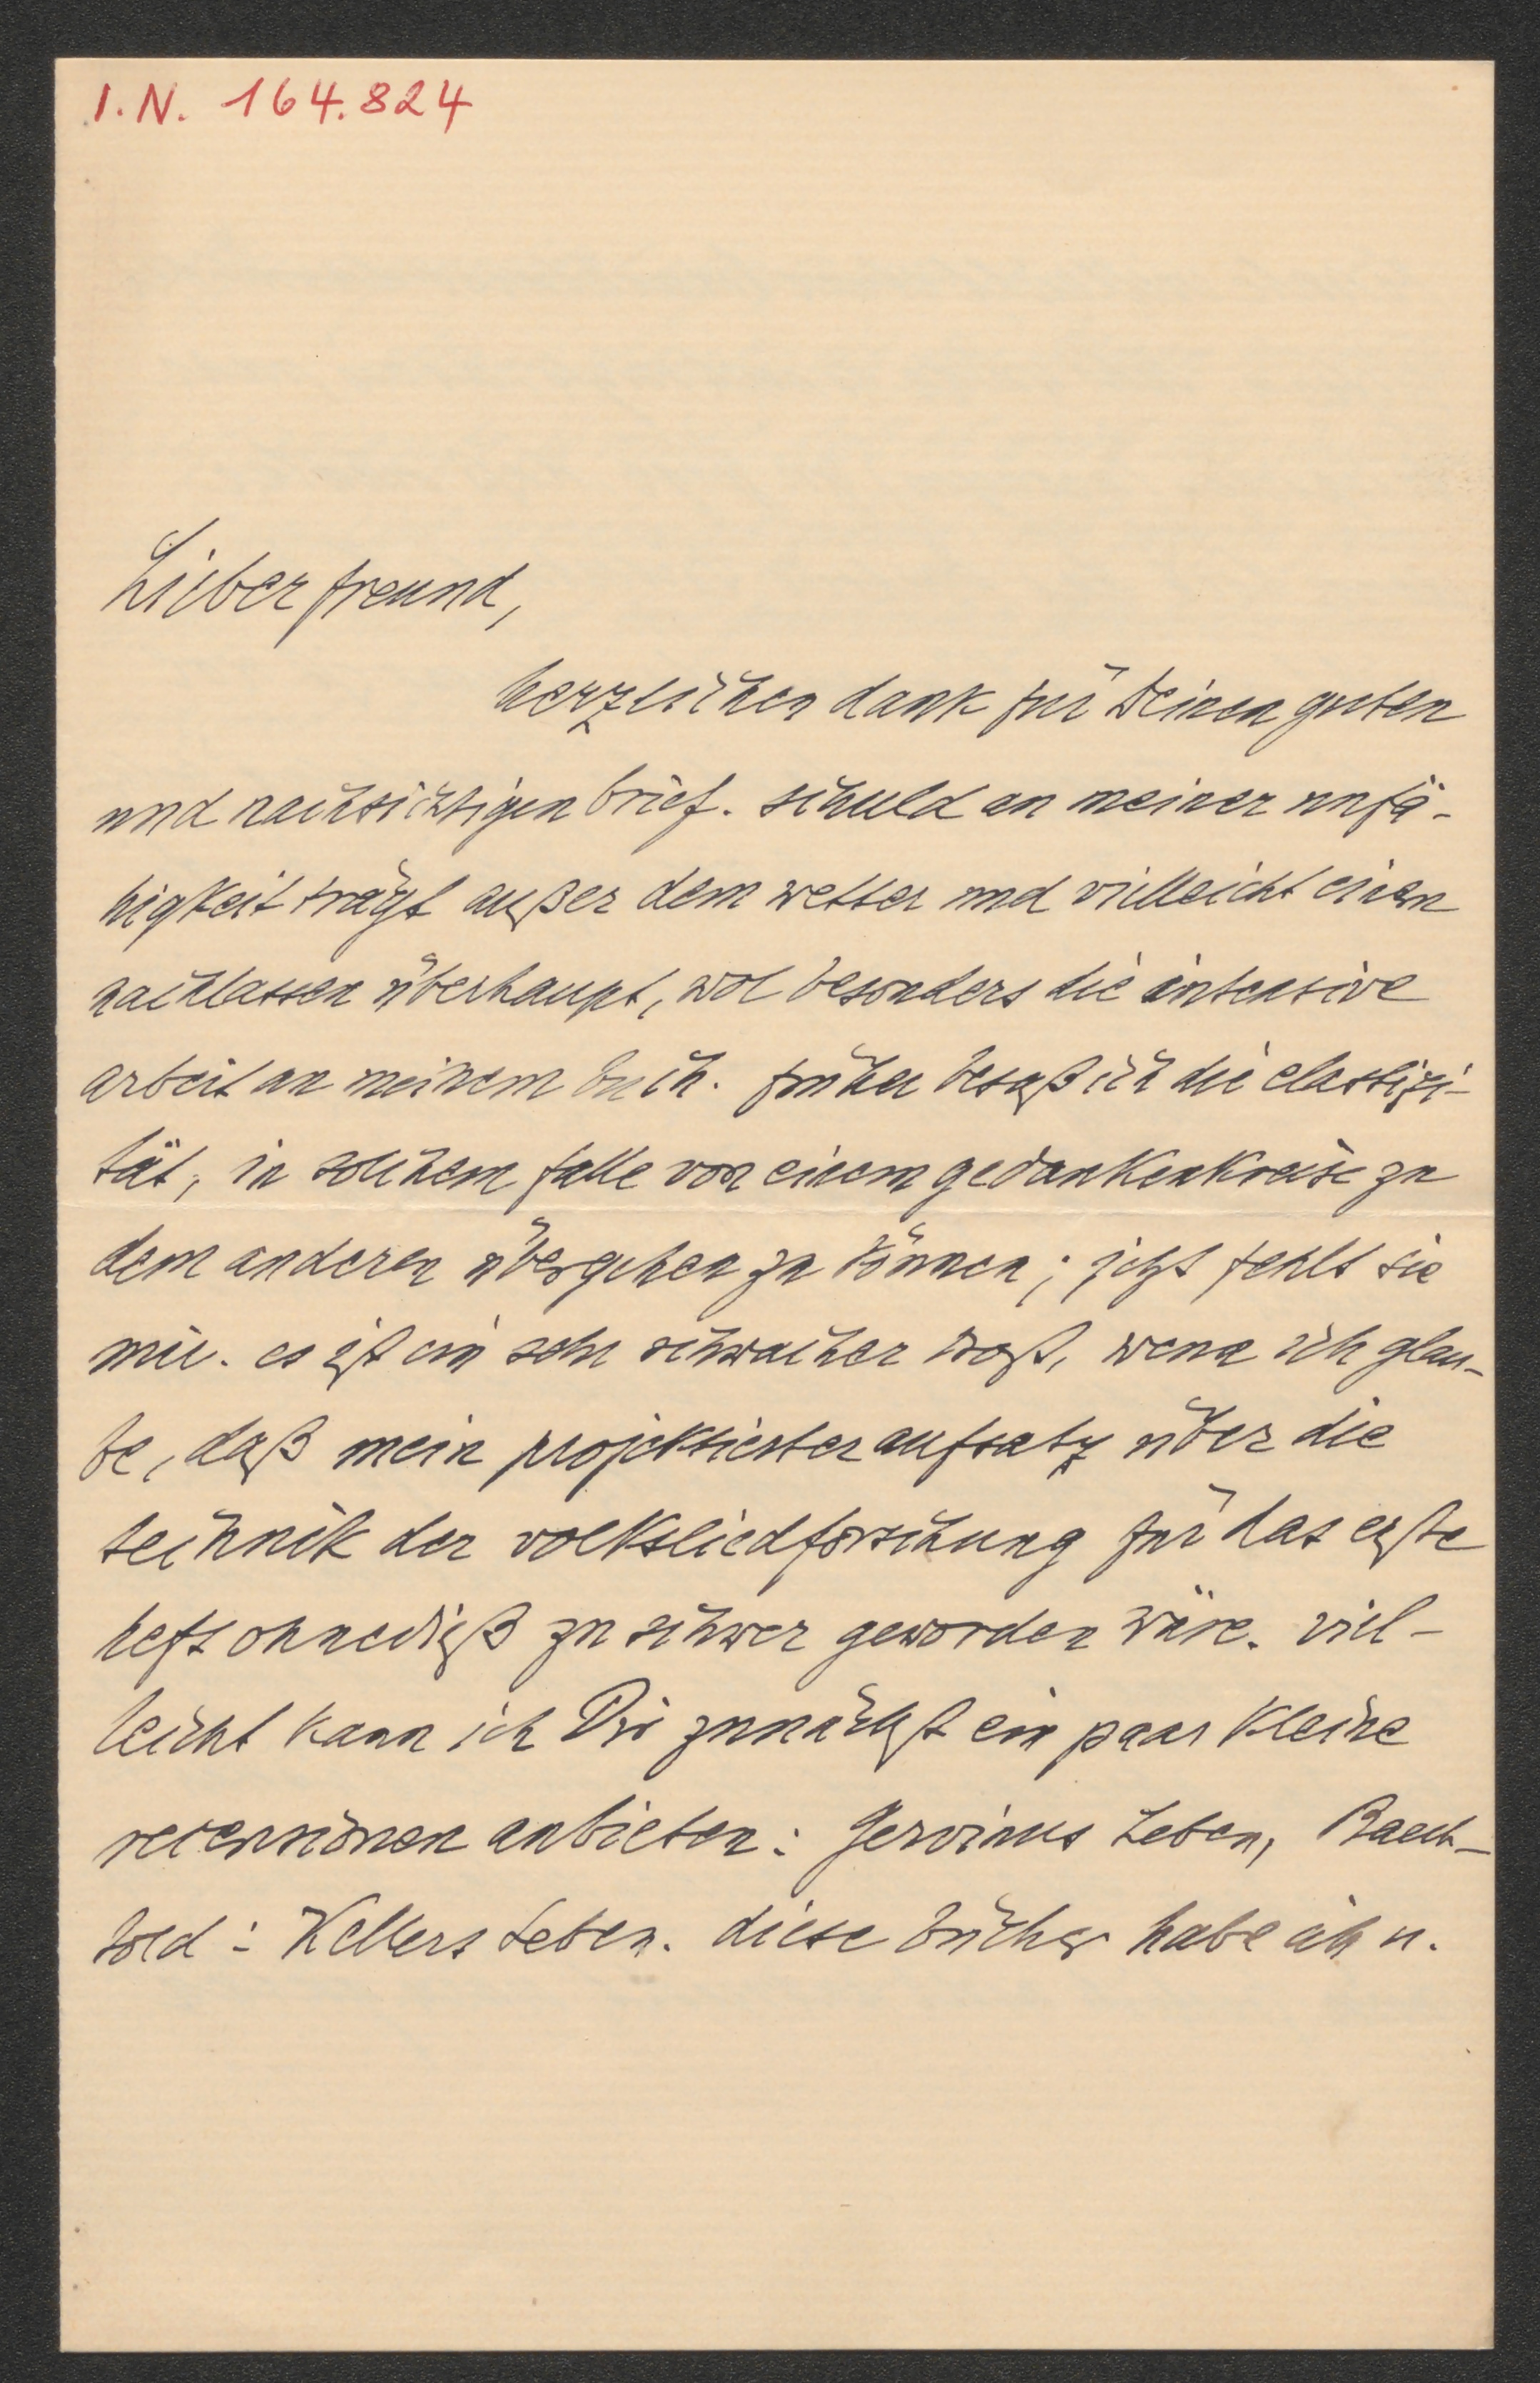 I.N. 164.824
Lieber freund,
herzlichen dank für Deinen guten
und nachsichtigen brief. schuld an meiner unfä-
higkeit trägt außer dem wetter und villeicht einem
nachlassen überhaupt, wol besonders die intensive
arbeit an meinem buch. früher besaß ich die elastizi-
tät, in solchem falle von einem gedankenkreise zu
dem anderen übergehen zu können; jetzt fehlt sie
mir. es ist ein sehr schwacher trost, wenn ich glau-
be, daß mein projektierter aufsatz über die
technik der volksliedforschung für das erste
heft ohnediß zu schwer geworden wäre. viel-
leicht kann ich Dir zunächst ein paar kleine
recensionen anbieten: Gervinus Leben, Baech-
told: Kellers Leben. diese bücher habe ich u.